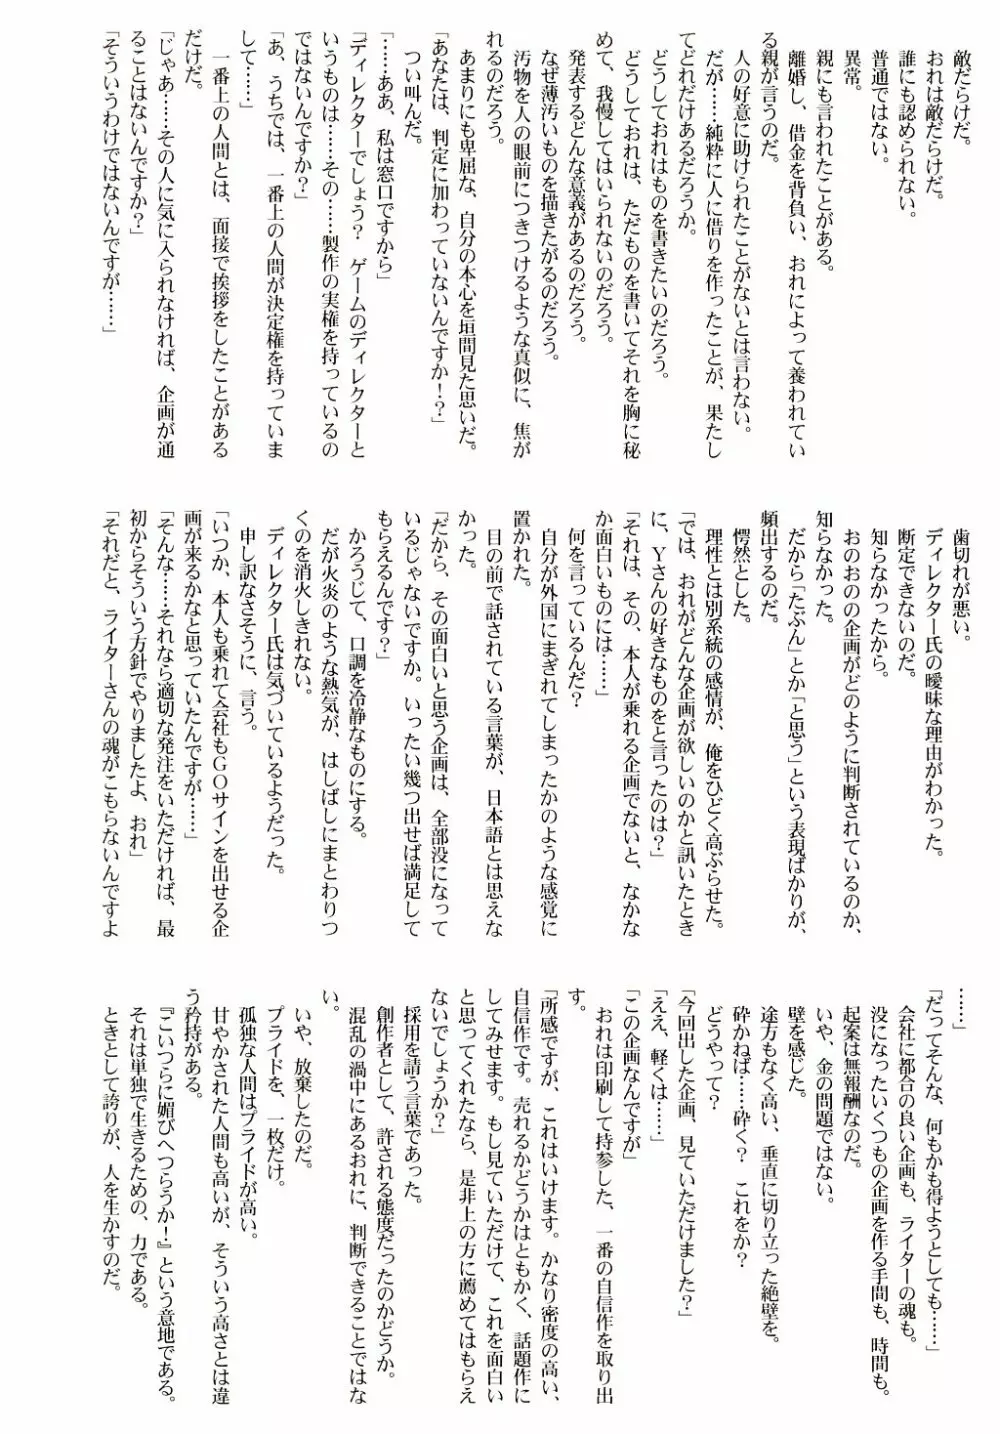 敵だらけだ。
おれは敵だらけだ。
誰にも認められない。
普通ではない。
異常。
親にも言われたことがある。
離婚し、借金を背負い、おれによって養われてい
る親が言うのだ。
人の好意に助けられたことがないとは言わない。
だが……純粋に人に借りを作ったことが、果たし
てどれだけあるだろうか。
どうしておれはものを書きたいのだろう。
どうしておれは、ただものを書いてそれを胸に秘
めて、我慢してはいられないのだろう。
発表するどんな意義があるのだろう。
なぜ薄汚いものを描きたがるのだろう。
汚物を人の眼前につきつけるような真似に、焦が
れるのだろう。
あまりにも卑屈な、自分の本心を垣間見た思いだ。
「あなたは、判定に加わっていないんですか！？」
つい叫んだ。
「……ああ、私は窓口ですから」
「ディレクターでしょう？　ゲームのディレクターと
いうものは……その……製作の実権を持っているの
ではないんですか？」
「あ、うちでは、一番上の人間が決定権を持っていま
して……」
一番上の人間とは、面接で挨拶をしたことがある
だけだ。
「じゃあ……その人に気に入られなければ、企画が通
ることはないんですか？」
「そういうわけではないんですが……」
歯切れが悪い。
ディレクター氏の曖昧な理由がわかった。
断定できないのだ。
知らなかったから。
おのおのの企画がどのように判断されているのか、
知らなかった。
だから「たぶん」とか「と思う」という表現ばかりが、
頻出するのだ。
愕然とした。
理性とは別系統の感情が、俺をひどく高ぶらせた。
「では、おれがどんな企画が欲しいのかと訊いたとき
に、Yさんの好きなものをと言ったのは？」
「それは、その、本人が乗れる企画でないと、なかな
か面白いものには……」
何を言っているんだ？
自分が外国にまぎれてしまったかのような感覚に
置かれた。
目の前で話されている言葉が、日本語とは思えな
かった。
「だから、その面白いと思う企画は、全部没になって
いるじゃないですか。いったい幾つ出せば満足して
もらえるんです？」
かろうじて、口調を冷静なものにする。
だが火炎のような熱気が、はしばしにまとわりつ
くのを消火しきれない。
ディレクター氏は気づいているようだった。
申し訳なさそうに、言う。
「いつか、本人も乗れて会社もGOサインを出せる企
画が来るかなと思っていたんですが……」
「そんな……それなら適切な発注をいただければ、最
初からそういう方針でやりましたよ、おれ」
「それだと、ライターさんの魂がこもらないんですよ
……」
「だってそんな、何もかも得ようとしても……」
会社に都合の良い企画も、ライターの魂も。
没になったいくつもの企画を作る手間も、時間も。
起案は無報酬なのだ。
いや、金の問題ではない。
壁を感じた。
途方もなく高い、垂直に切り立った絶壁を。
砕かねば……砕く？　これをか？
どうやって？
「今回出した企画、見ていただけました？」
「ええ、軽くは……」
「この企画なんですが」
おれは印刷して持参した、一番の自信作を取り出
す。
「所感ですが、これはいけます。かなり密度の高い、
自信作です。売れるかどうかはともかく、話題作に
してみせます。もし見ていただけて、これを面白い
と思ってくれたなら、是非上の方に薦めてはもらえ
ないでしょうか？」
採用を請う言葉であった。
創作者として、許される態度だったのかどうか。
混乱の渦中にあるおれに、判断できることではな
い。
いや、放棄したのだ。
プライドを、一枚だけ。
孤独な人間はプライドが高い。
甘やかされた人間も高いが、そういう高さとは違
う矜持がある。
『こいつらに媚びへつらうか！』という意地である。
それは単独で生きるための、力である。
ときとして誇りが、人を生かすのだ。